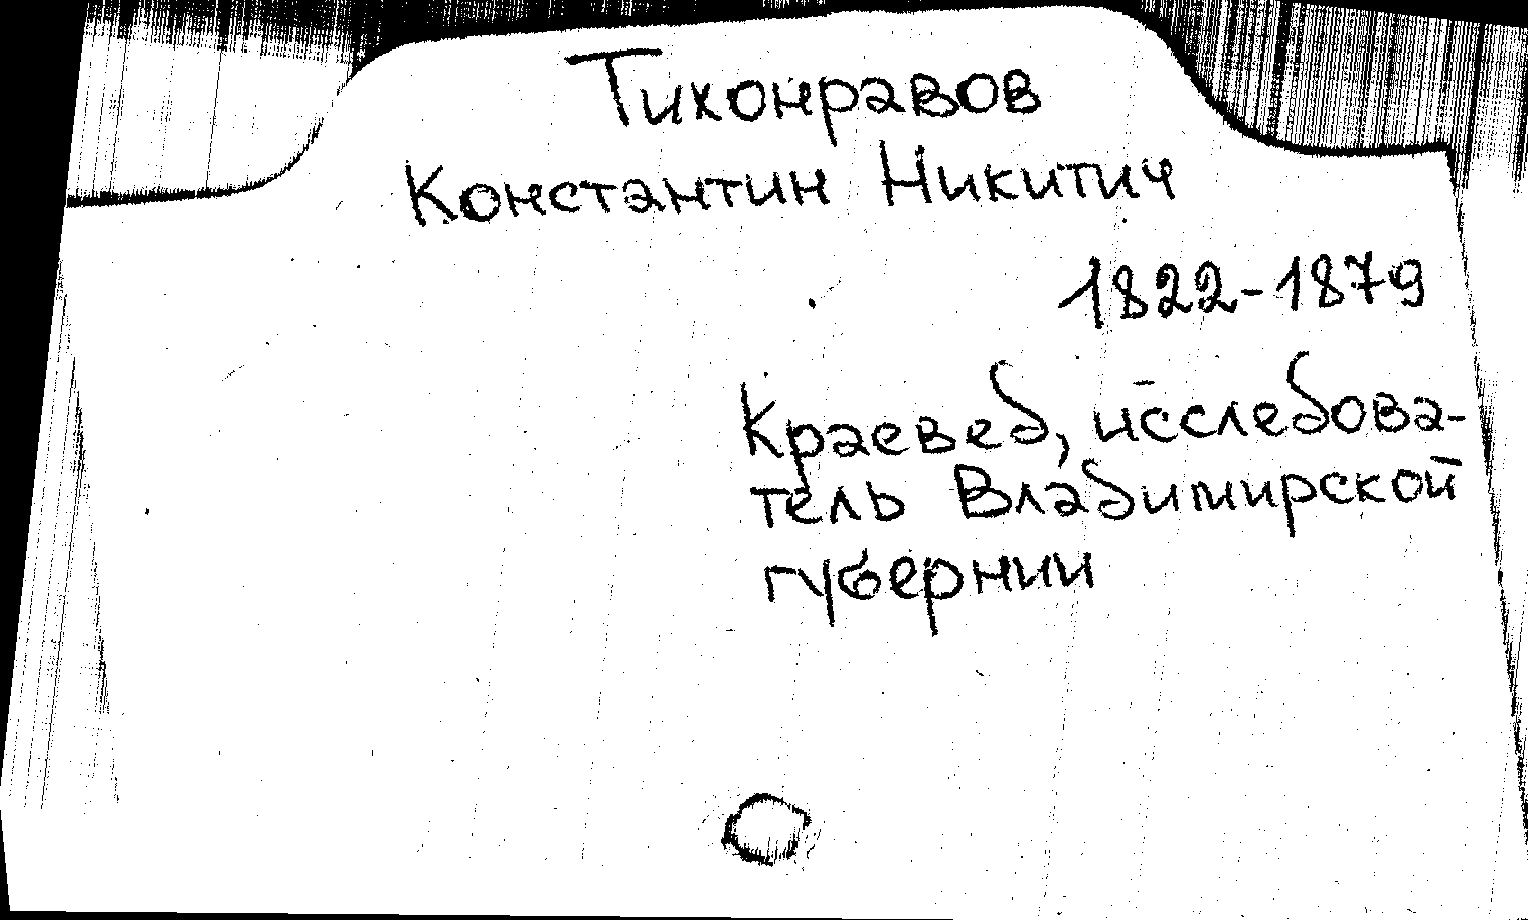 Тихонравов
Константин Никитич
1822-1879
Краевед, исследова-
тель Владимирской
губернии